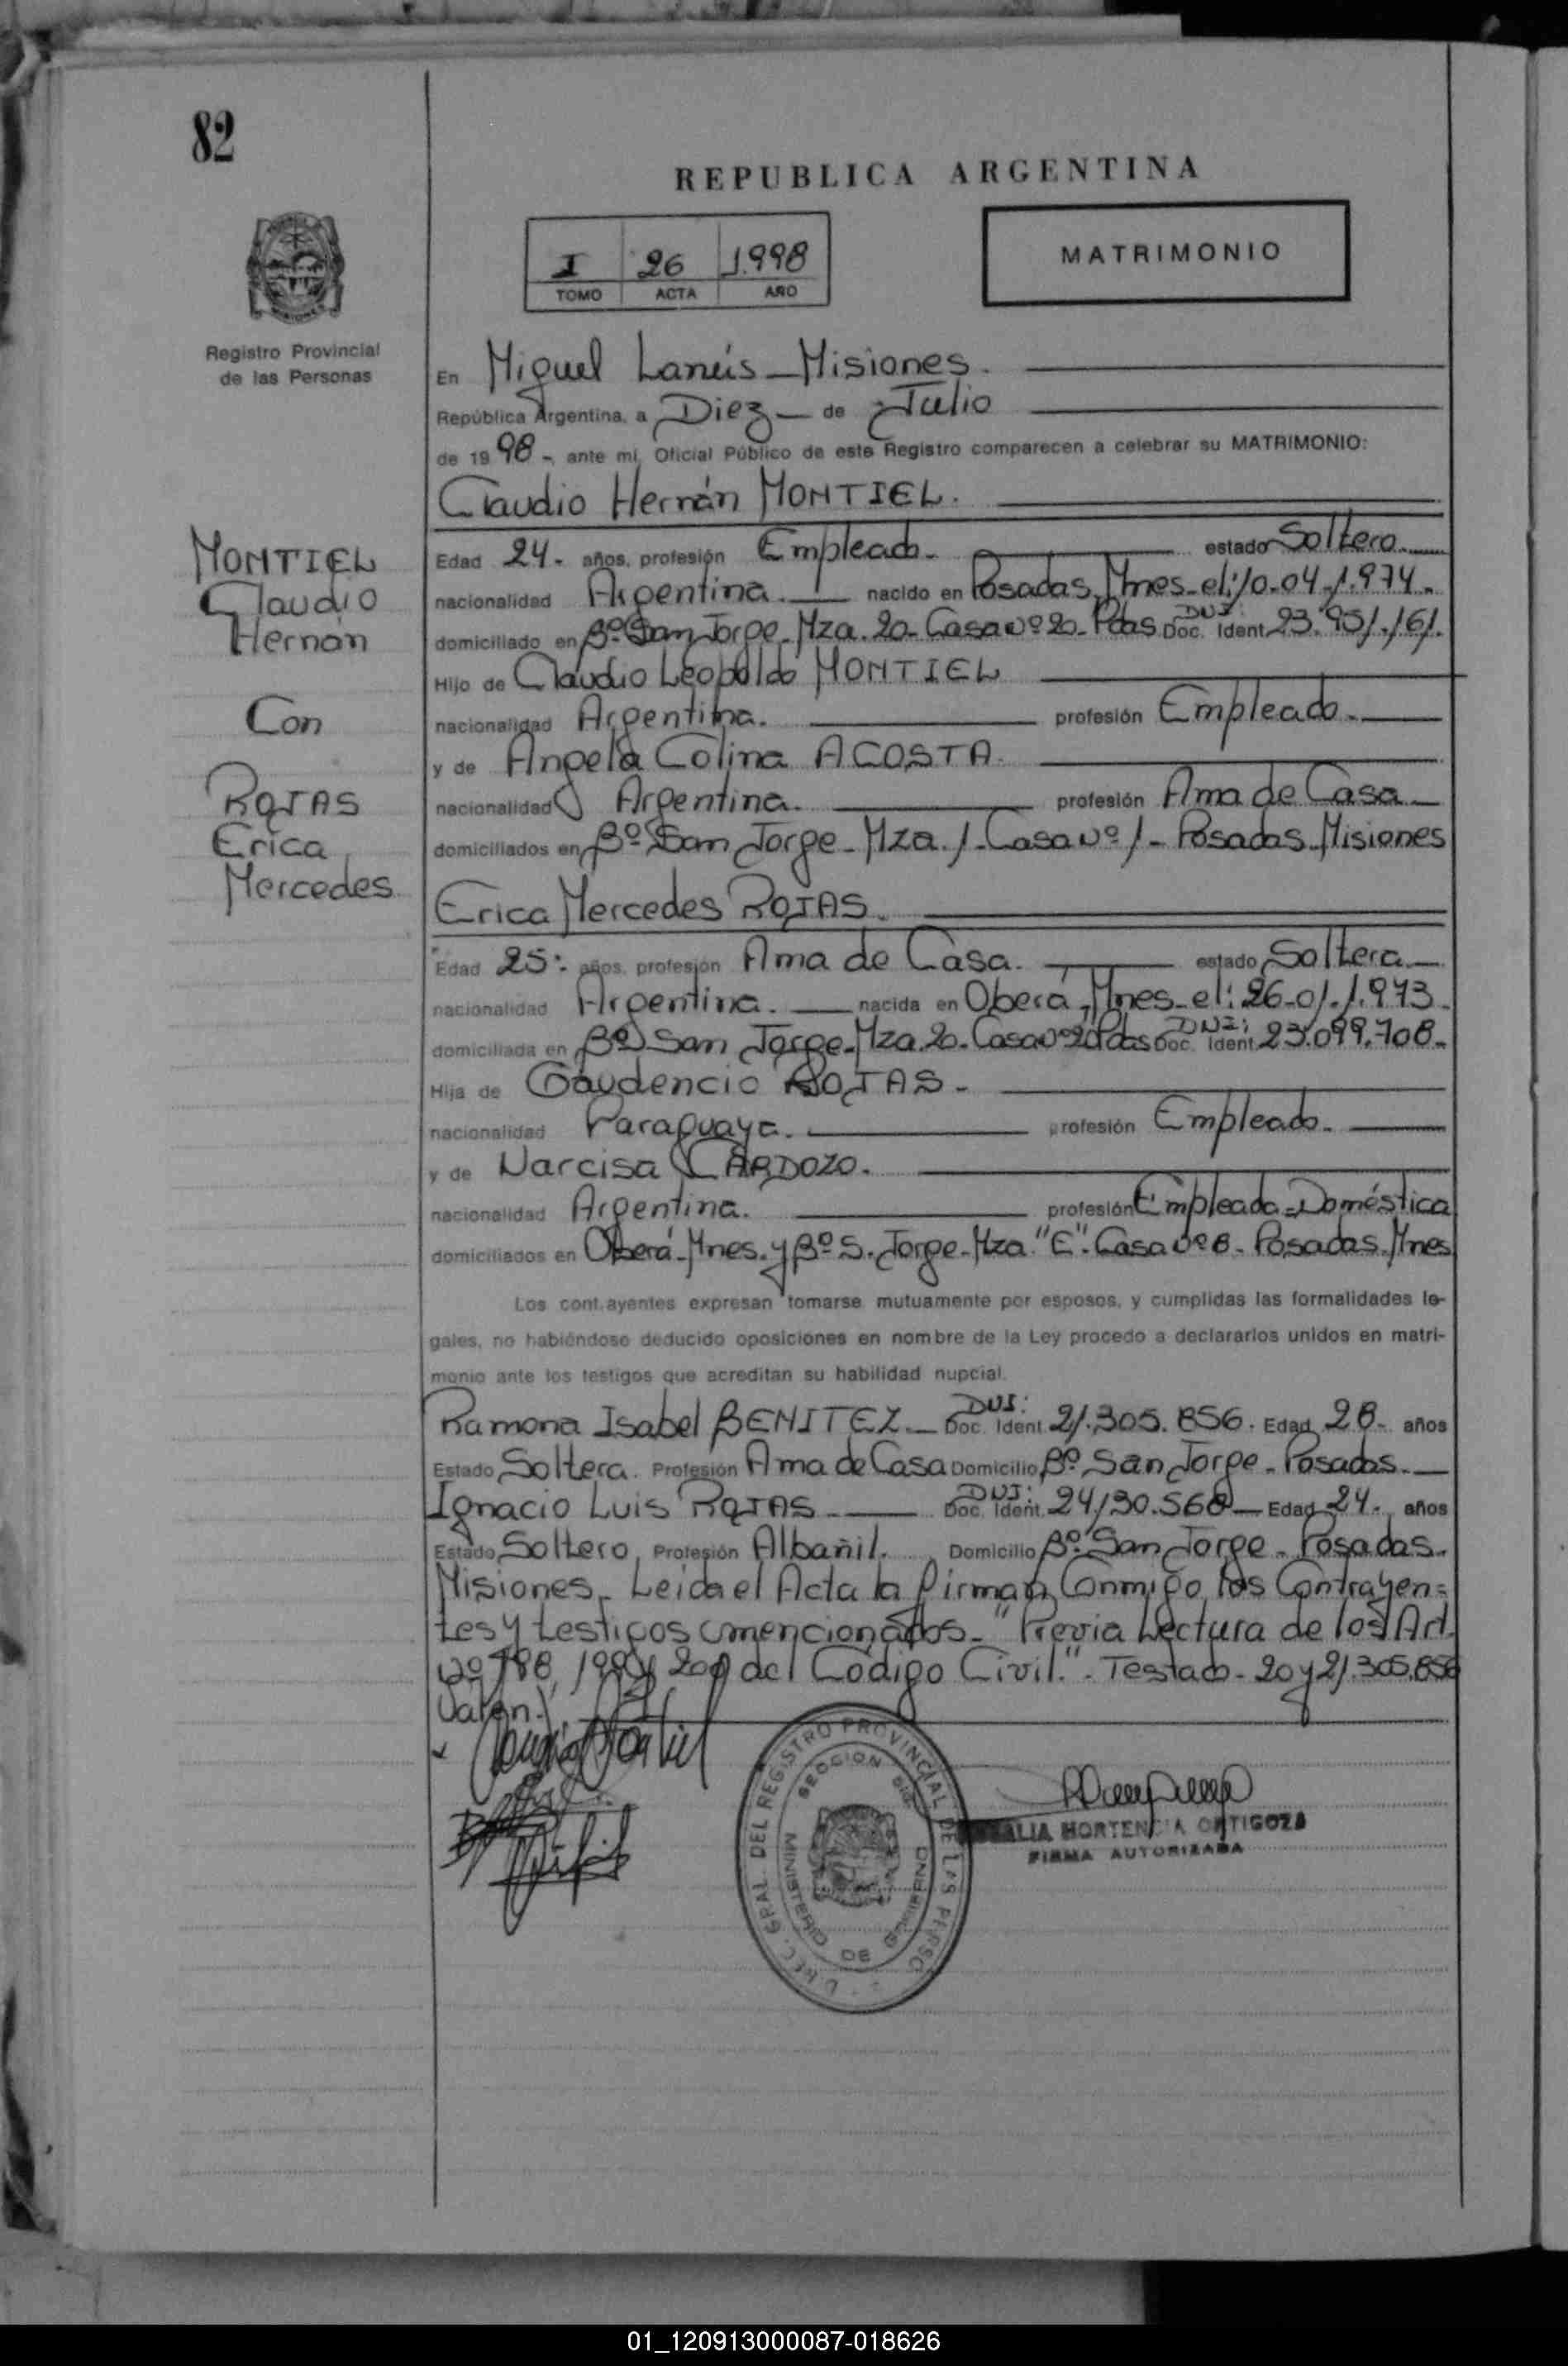 82
REPUBLICA ARGENTINA
I 26 1.998
TOMO ACTA AÑO
MATRIMONIO
Registro Provincial
de las Personas
MONTIEL
Claudio
Hernán
Con
ROJAS
Erica
Mercedes
En Miguel Lanús - Misiones.
República Argentina, a Diez - de Julio
de 19 98 -, ante mí, Oficial Público de este Registro comparecen a celebrar su MATRIMONIO:
Claudio Hernán MONTIEL.
Edad 24- años, profesión Empleado- estado Soltero.
nacionalidad Argentina. nacido en Posadas, Mnes-el:10-04-1.974-
domiciliado en Bº San Jorge-Mza.20-Casa Nº 20-Pdas Doc. Ident. DNI: 23.951.161.
Hijo de Claudio Leopoldo MONTIEL
nacionalidad Argentina. profesión Empleado-
y de Angela Colina ACOSTA.
nacionalidad Argentina. profesión Ama de Casa-
domiciliados en Bº San Jorge-Mza.1-Casa Nº 1- Posadas-Misiones
Erica Mercedes ROJAS.
Edad 25- años, profesión Ama de Casa. estado Soltera-
nacionalidad Argentina. nacida en Oberá, Mnes-el: 26-01-1.973-
domiciliada en Bº San Jorge-Mza.20-Casa Nº 20 Pdas Doc. Ident. DNI: 23.099.708-
Hija de Gaudencio ROJAS-
nacionalidad Paraguaya. profesión Empleado-
y de Narcisa CARDOZO.
nacionalidad Argentina. profesión Empleada-Doméstica
domiciliados en Oberá-Mnes. y Bº S. Jorge-Mza "E"-Casa Nº 8-Posadas-Mnes
Los contrayentes expresan tomarse mutuamente por esposos, y cumplidas las formalidades le-
gales, no habiéndose deducido oposiciones en nombre de la Ley procedo a declararlos unidos en matri-
monio ante los testigos que acreditan su habilidad nupcial.
Ramona Isabel BENITEZ- Doc. Ident. DNI: 21.305.856. Edad 28- años
Estado Soltera. Profesión Ama de Casa Domicilio Bº San Jorge-Posadas-
Ignacio Luis ROJAS- Doc. Ident. DNI: 24.130.568- Edad 24-, años
Estado Soltero, Profesión Albañil. Domicilio Bº San Jorge-Posadas-
Misiones- Leida el Acta la firman Conmigo los Contrayen=
tes y testigos mencionados-"Previa Lectura de los Art.
Nº 198, 199 y 200 del Código Civil."-Testado-20 y 21.305.856
Valen.)
DIREC. GRAL. DEL REGISTRO PROVINCIAL DE LAS PERSO
SECCION
MINISTERIO DE GOBIERNO
HORTENCIA ORTIGOZA
FIRMA AUTORIZADA
01_120913000087-018626